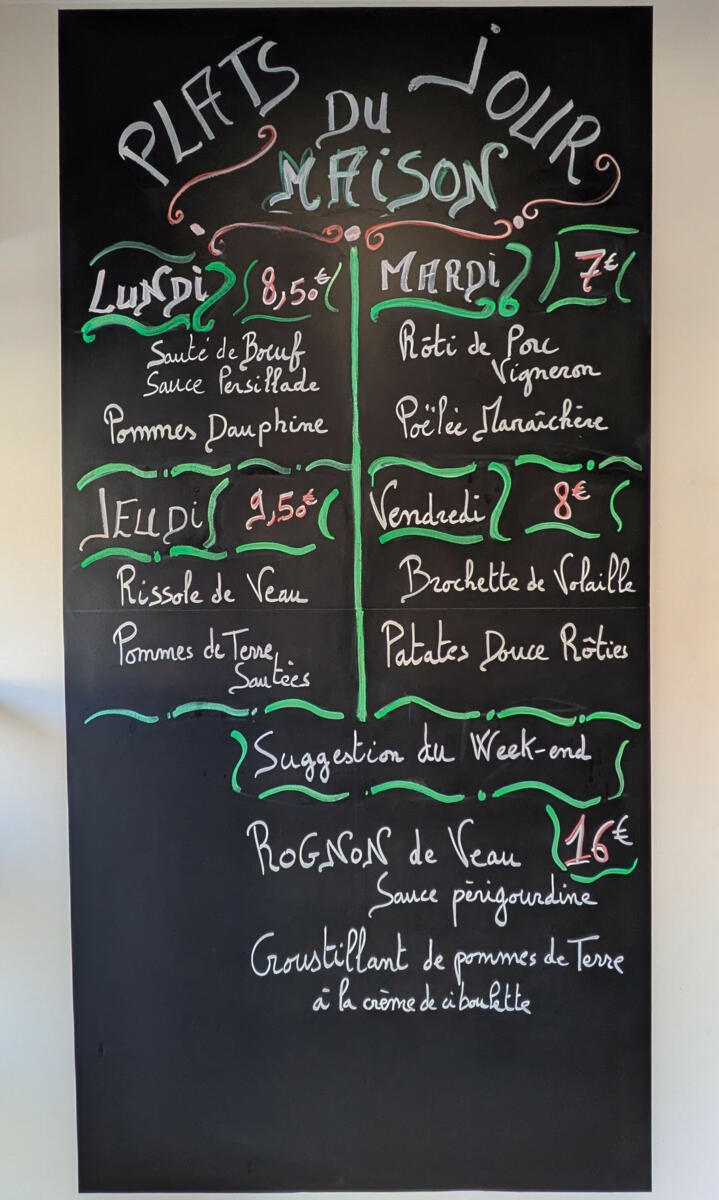 PLATS DU JOUR
MAiSON
LUNDi 8,50€
Sauté de Bœuf
Sauce Persillade
Pommes Dauphine
MARDi 7€
Rôti de Porc
Vigneron
Poëlée Maraîchère
JEUDi 9,50€
Rissole de Veau
Pommes de Terre
Sautées
Vendredi 8€
Brochette de Volaille
Patates Douce Rôties
Suggestion du Week-end
ROGNON de Veau 16€
Sauce périgourdine
Croustillant de pommes de Terre
à la crème de ciboulette